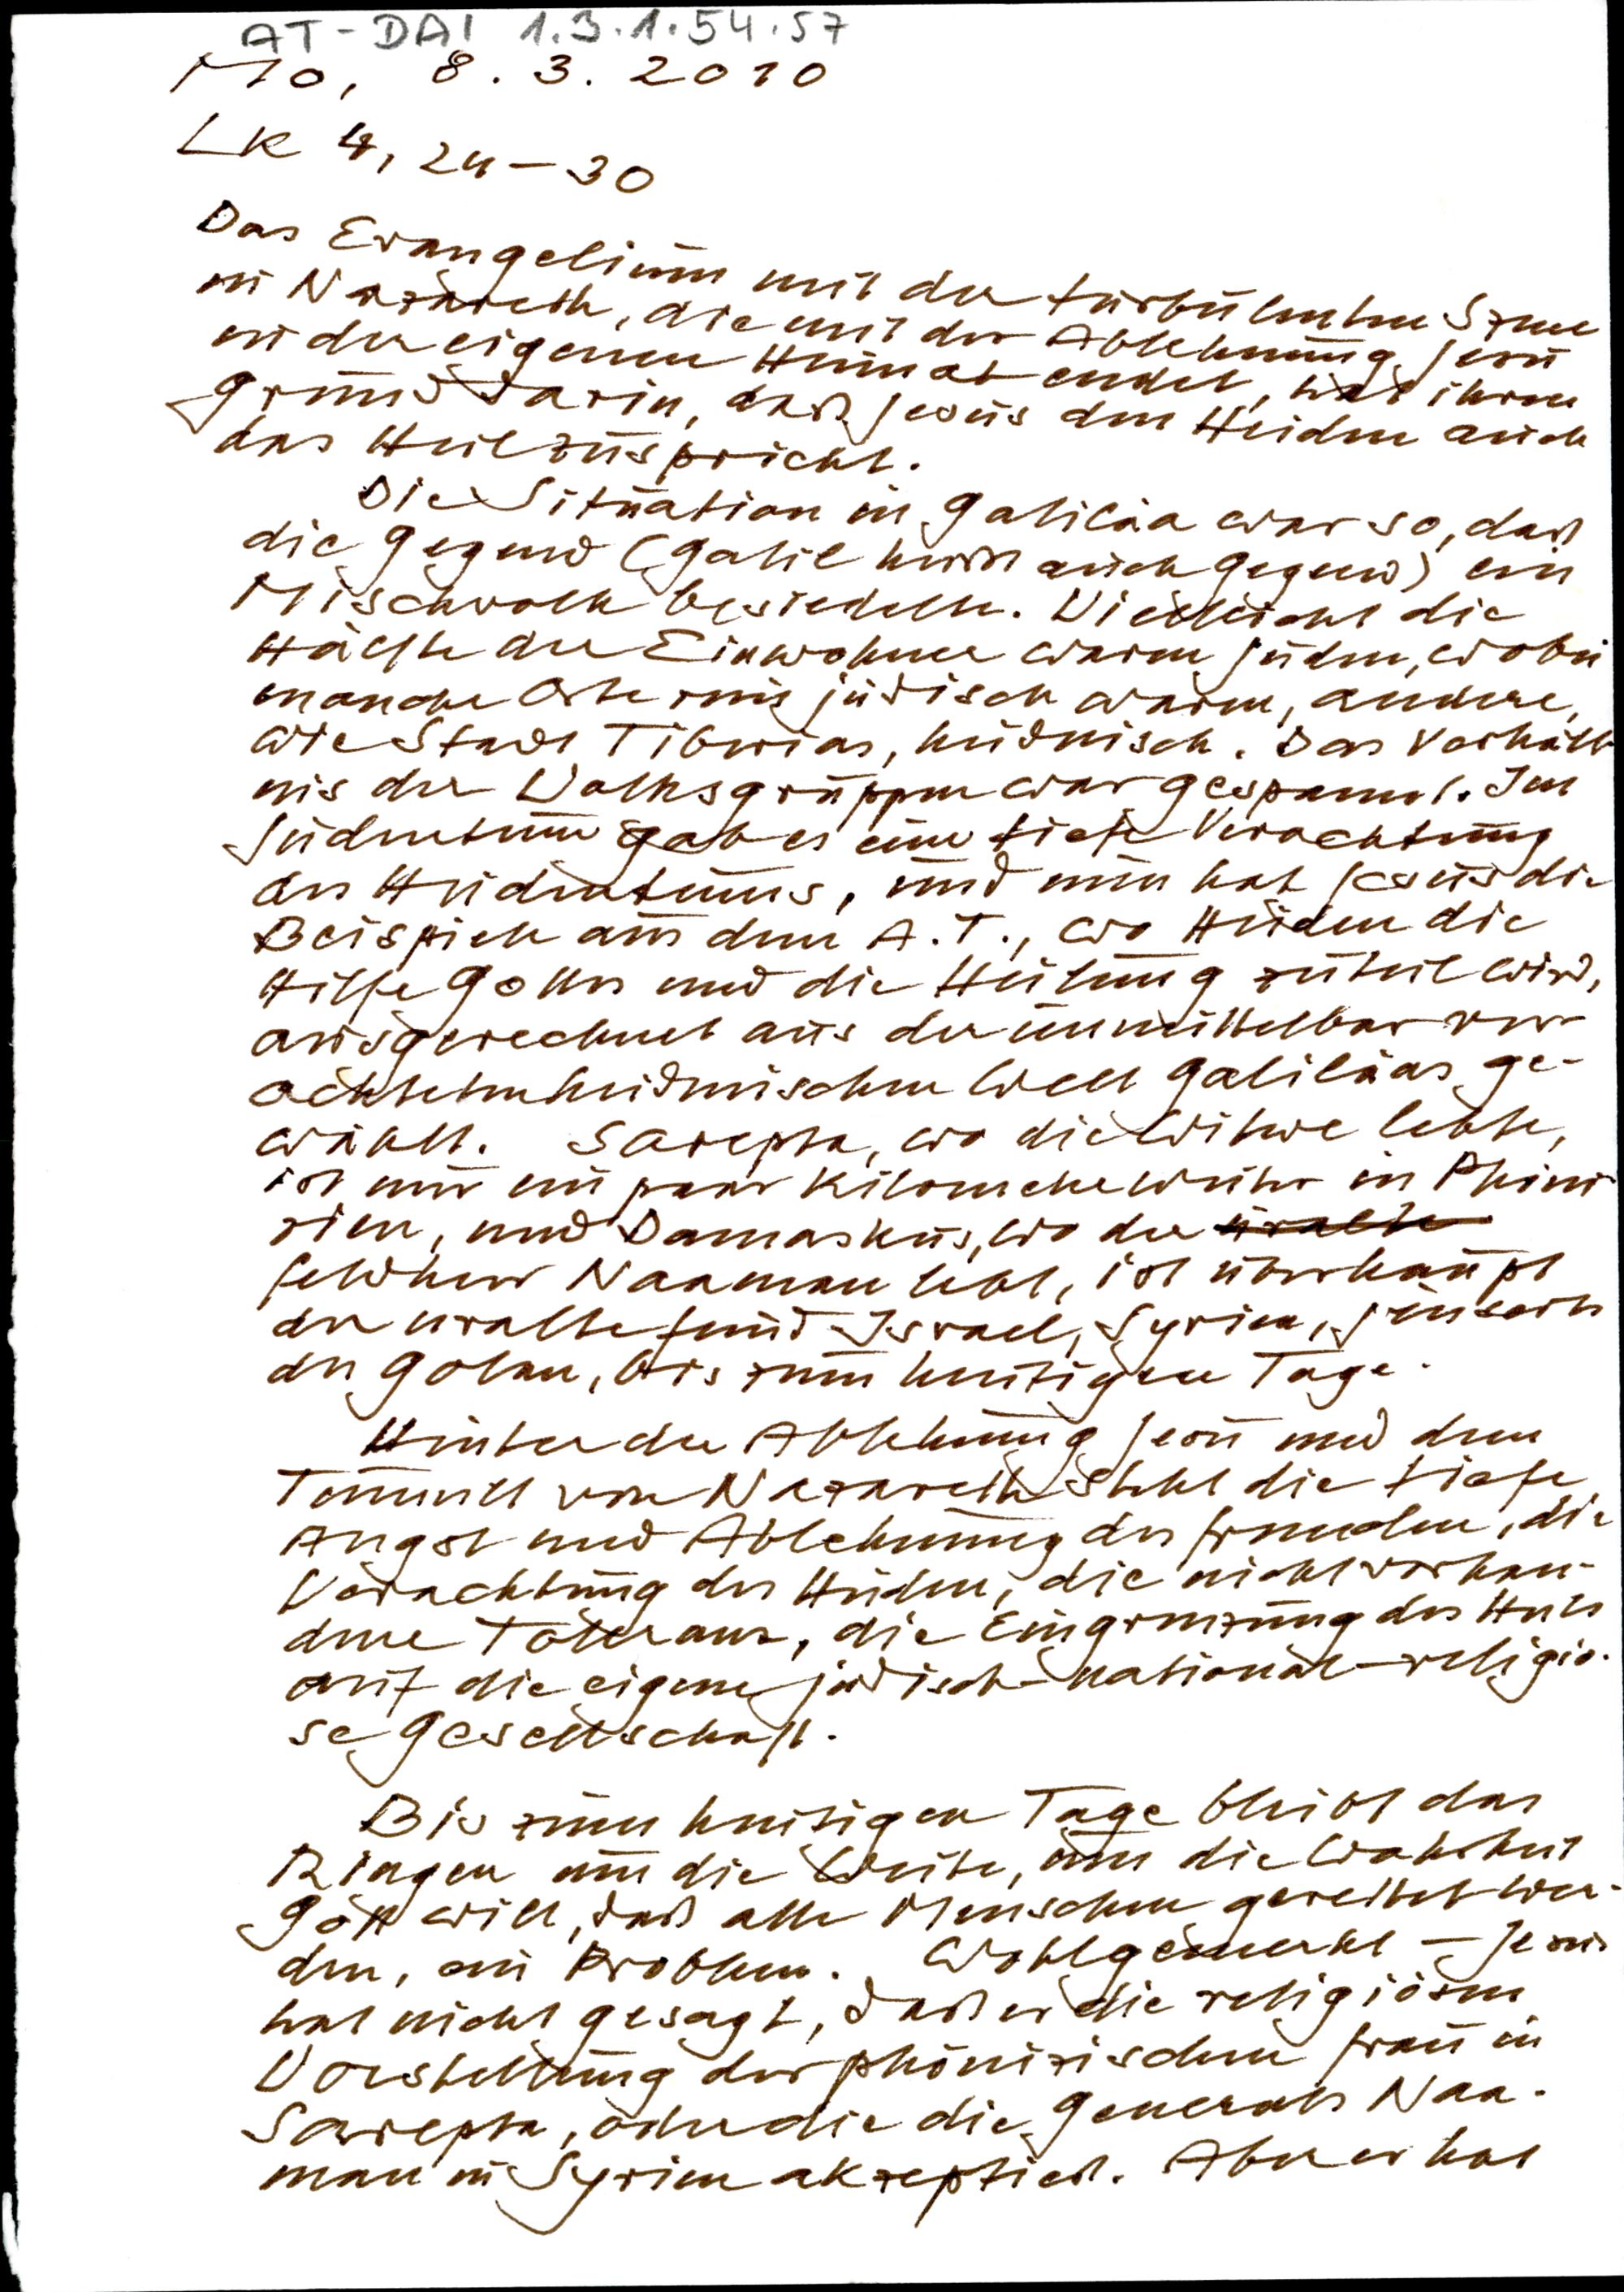 AT-DAI 1.3.1.54.57
Mo, 8.3.2010
Lk 4, 24-30
Das Evangelium mit der turbulenten Szene
in Nazareth, die mit der Ablehnung Jesu
in der eigenen Heimat endet, hat ihren
Grund darin, daß Jesus den Heiden auch
das Heil zuspricht.
Die Situation in Galiläa war so, daß
die Gegend (Galil heißt auch Gegend) ein
Mischvolk besiedelte. Vielleicht die
Hälfte der Einwohner waren Juden, wobei
manche Orte rein jüdisch waren, andere,
wie Stadt Tiberias, heidnisch. Das Verhält-
nis der Volksgruppen war gespannt. Im
Judentum gab es eine tiefe Verachtung
des Heidentums, und nun hat Jesus die
Beispiele aus dem A.T., wo Heiden die
Hilfe Gottes und die Heilung zuteil wird,
ausgerechnet aus der unmittelbar ver-
achteten heidnischen Welt Galiläas ge-
wählt. Sarepta, wo die Witwe lebte,
ist nur ein paar Kilometer weiter in Phöni-
zien, und Damaskus, wo der uralte
Feldherr Naaman lebt, ist überhaupt
der uralte Feind Israel, Syrien, jenseits
des Golan, bis zum heutigen Tage.
Hinter der Ablehnung Jesu und dem
Tumult von Nazareth steht die tiefe
Angst und Ablehnung des Fremden, die
Verachtung der Heiden, die nicht vorhan-
dene Toleranz, die Eingrenzung des Heils
auf die eigene jüdisch-national-religiö-
se Gesellschaft.
Bis zum heutigen Tage bleibt das
Ringen um die Weite, um die Wahrheit
Gott will, daß alle Menschen gerettet wer-
den, ein Problem. Wohlgemerkt — Jesus
hat nicht gesagt, daß er die religiösen
Vorstellung der phönizischen Frau in
Sarepta, oder die die Generals Naa-
man in Syrien akzeptiert. Aber er hat